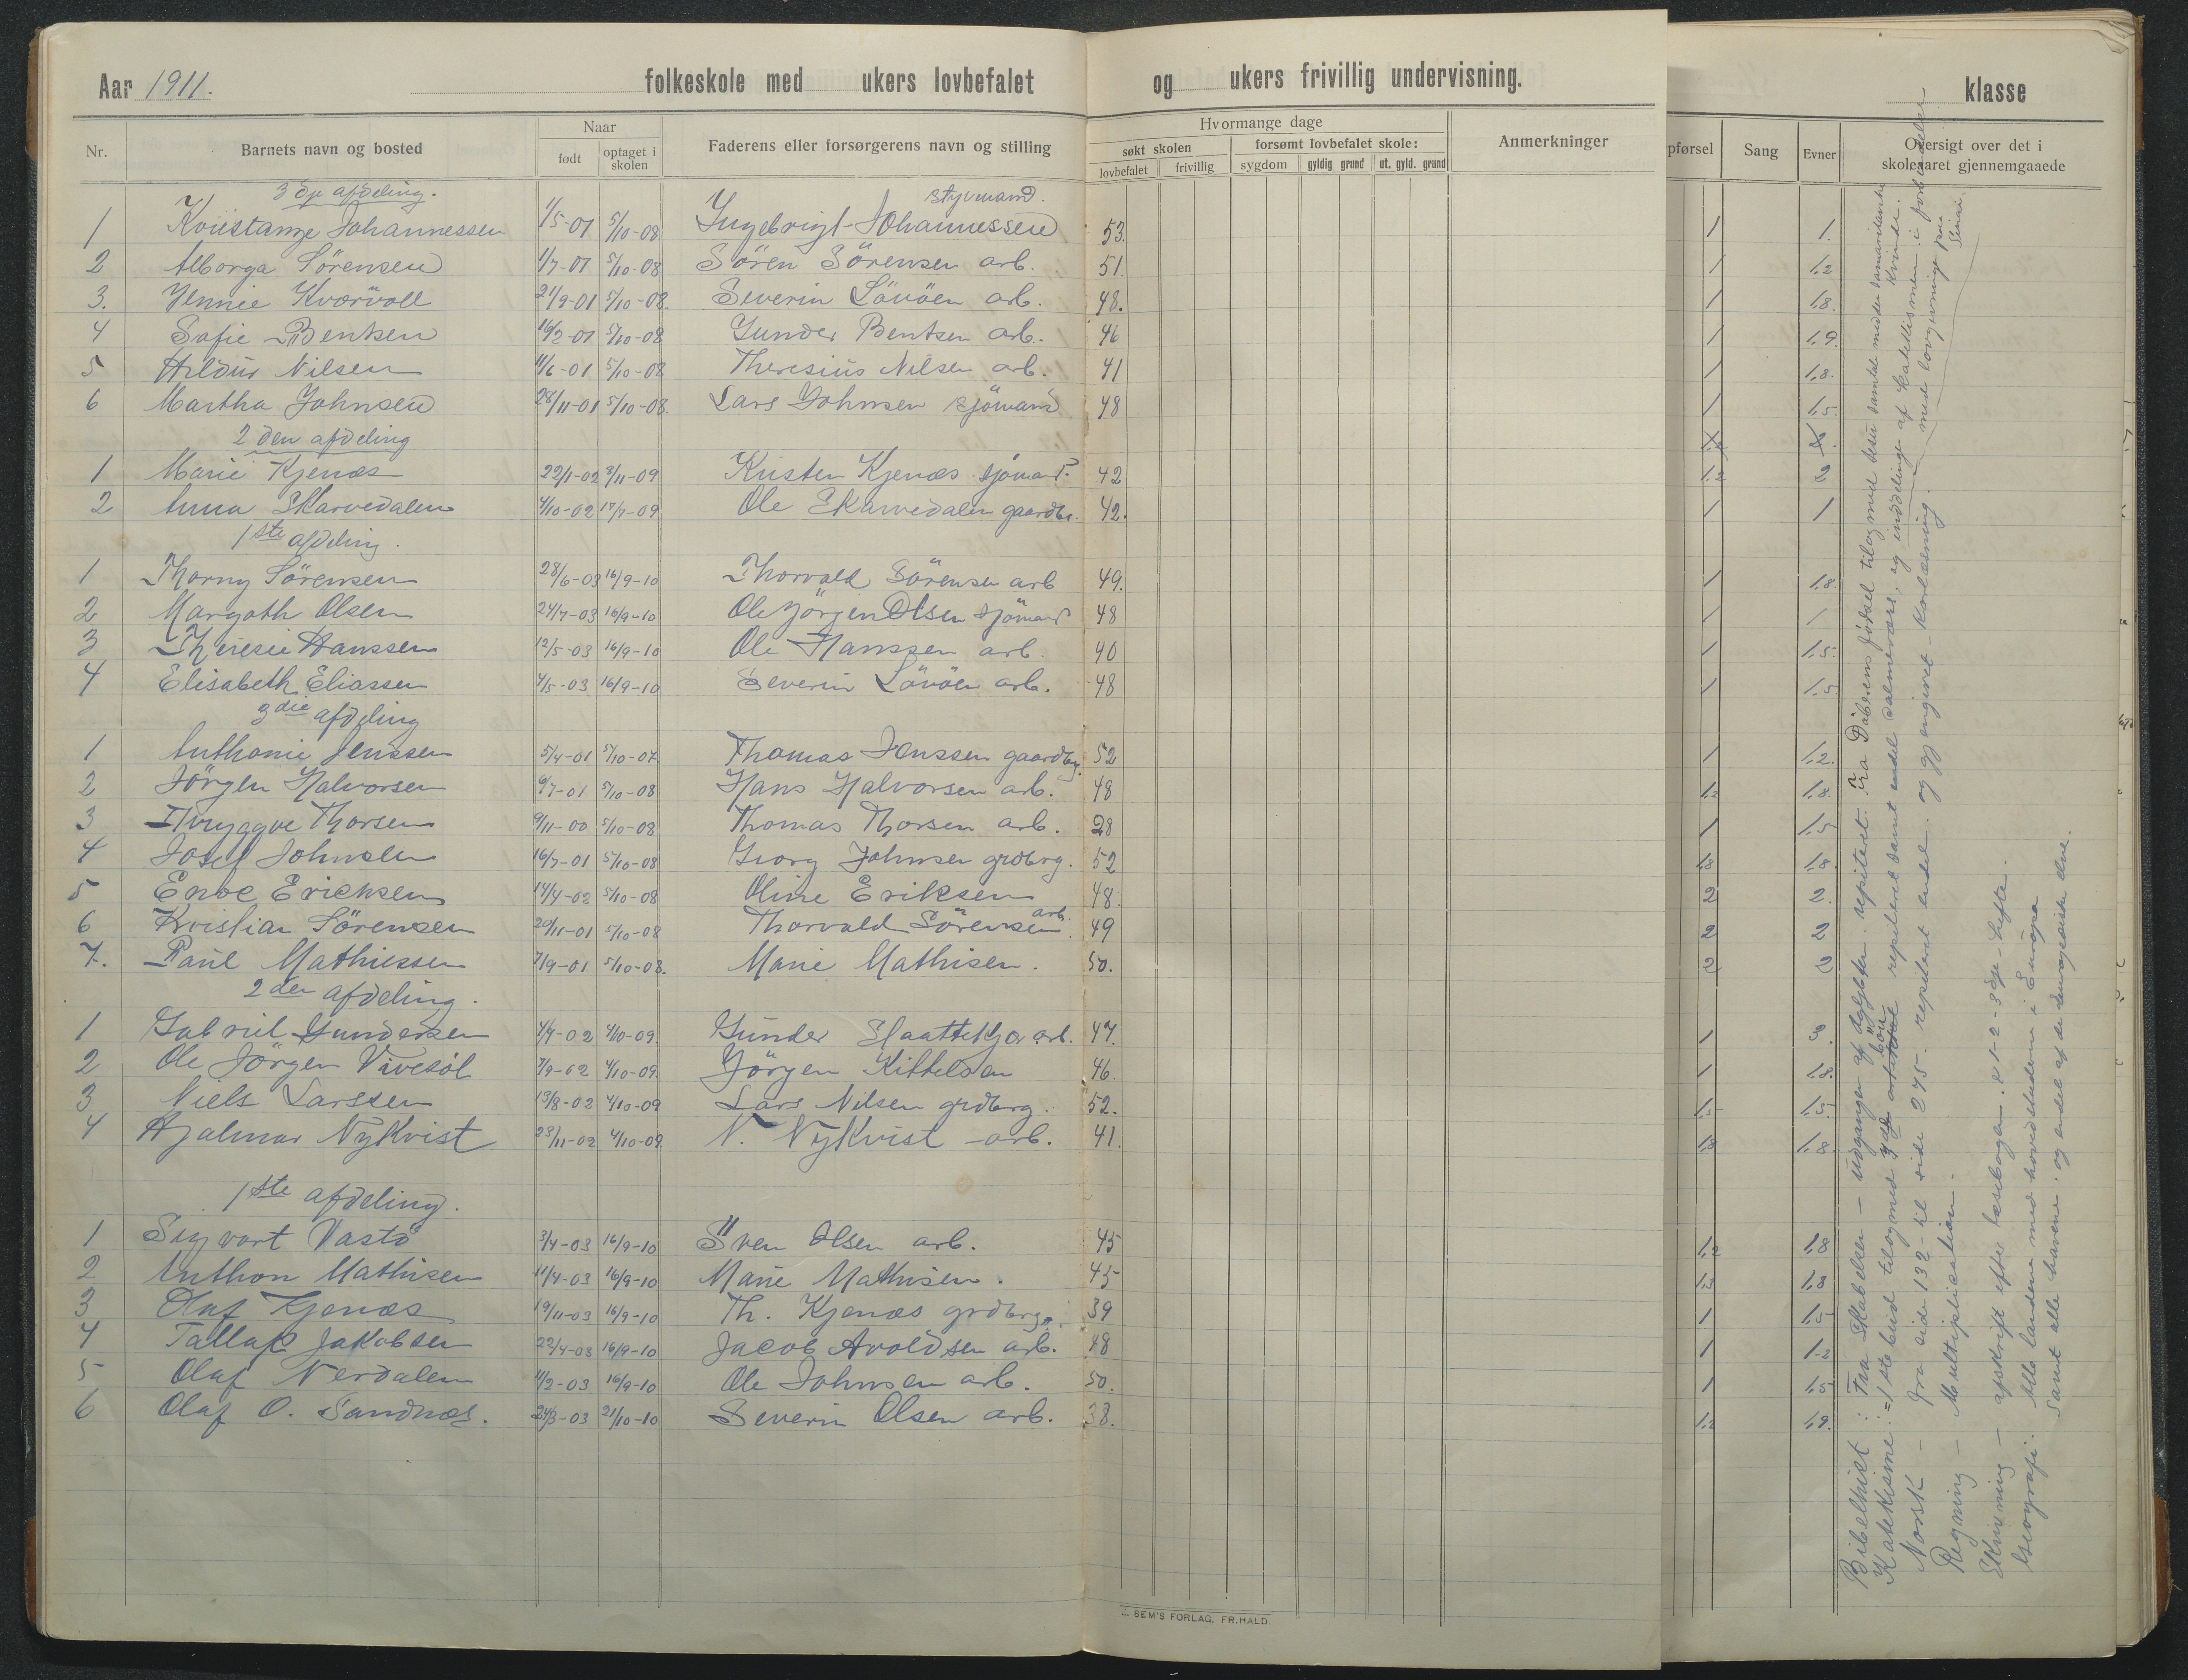 Aar 1911. folkeskole med ukers lovbefalet og ukers frivillig undervisning. klasse
Nr. Barnets navn og bosted Naar født optaget i skolen Faderens eller forsørgerens navn og stilling Hvormange dage søkt skolen lovbefalet frivillig forsømt lovbefalet skole: sygdom gyldig grund ut. gyld. grund Anmerkninger
pførsel Sang Evner Oversigt over det i skoleaaret gjennemgaaede
3 dje afdeling.
styrmand.
1 Johannessen 1/5-01 5/10-08 Ingebrigt Johannessen 53. 1 1.
2 Alborga Sörensen 1/7-01 5/10-08 Sören Sörensen arb. 51. 1 1,2
3. Jennie Kvarvoll 21/9-01 5/10-08. Severin Lövöen arb. 48. 1 1,8.
4 Sofie Bentsen 16/2-01 5/10-08 Gunder Bentsen arb. 46 1 1,9.
5 Hildur Nilsen 11/6-01 5/10-08 Theresius Nilsen arb. 41 1 1,8.
6 Martha Johnsen 28/11-01 5/10-08. Lars Johnsen sjömand 48 1 1,5.
2 den afdeling
1 Marie Kjenæs 22/1-02 3/11-09 Kristen Kjenæs sjömand. 42 1,2 2
2 Anna Skarvedalen 4/10-02 17/7-09 Ole Skarvedalen gaardbr. 42. 1 1
1ste afdeling.
1 Thorny Sörensen 28/6-03 16/9-10 Thorvald Sörensen arb 49. 1 1,8.
2 Margoth Olsen 24/7-03 16/9-10 Ole Jörgen Olsen sjömand 48 1 1
3 Theresie Hanssen 12/5-03 16/9-10 Ole Hanssen arb. 40 1 1,5.
4 Elisabeth Eliassen 4/5-03 16/9-10 Severin Lövöen arb. 48 1 1,5.
3die afdeling
1 Anthonie Jenssen 5/4-01 5/10-07. Thomas Jenssen gaardbg. 52 1 1,2.
2 Jörgen Halvorsen 6/7-01 5/10-08 Hans Halvorsen arb. 48 1,2 1,8.
3 Thryggve Thorsen 9/11-00 5/10-08 Thomas Thorsen arb. 28 1 1,5
4 Josef Johnsen 16/7-01 5/10-08 Georg Johnsen grdbrg. 52 1,3 1,8.
5 Enoc Ericksen 14/4-02 5/10-08 Oline Eriksen 48. 2 2.
6 Kristian Sörensen 20/11-01 5/10-08 Thorvald Sörensen arb. 49 2 2
7. Paul Mathiessen 7/9-01 5/10-08. Marie Mathisen. 50. 2 2
2den afdeling.
1 Gabriel Gundersen 4/4-02 4/10-09. Gunder arb. 47. 1 3.
2 Ole Jörgen Vivesöl 7/9-02 4/10-09. Jörgen Kittelsen 46. 1 1,8.
3 Niels Larssen 13/8-02 4/10-09 Lars Nilsen grdbrg. 52. 1,5 1,5.
4 Hjalmar Nykvist 23/11-02 4/10-09. N. Nykvist - arb. 41. 1,3 1,8.
1ste afdeling.
1 Sigvart Vastö 3/4-03 16/9-10 Sven Olsen arb. 45 1,2 1,8
2 Anthon Mathisen 11/4-03 16/9-10 Marie Mathisen. 45 1,3 1,8
3 Olaf Kjenæs 19/11-03 16/9-10 Th. Kjenæs grdbrg. 39 1 1,5
4 Tallak Jakobsen 22/4-03 16/9-10 Jacob Avoldsen arb. 48 1 1,2
5 Olaf Nerdalen 11/2-03 16/9-10 Ole Johnsen arb. 50. 1 1,5
6 Olaf O. Sandnæs. 24/3-03 21/10-10 Severin Olsen arb. 38. 1,2 1,9.
Bibelhist : Fra Skabelsen - udgangen af Ægypten. repiteret. Fra Döberens födsel tilogmed Jesu samtale med den samaritanske kvinde.
Katekisme : = 1ste bud tilogmed 3 bön repiteret samt endel salmevers, og inddelinge af katekismen i forbindelse med lovgivninge paa Sinai.
Norsk - fra side 132 - til side 275. repiteret endel. og gj. angivet - Korlæsning.
Regning - Multiplication.
Skrivning - afskrift efter læsebogen. 1-2-3dje hefte.
Geografi. Alle landene med hovedstæderne i Európa
samt alle havene. og endel af de elve.
SEM'S FORLAG, FR.HALD.